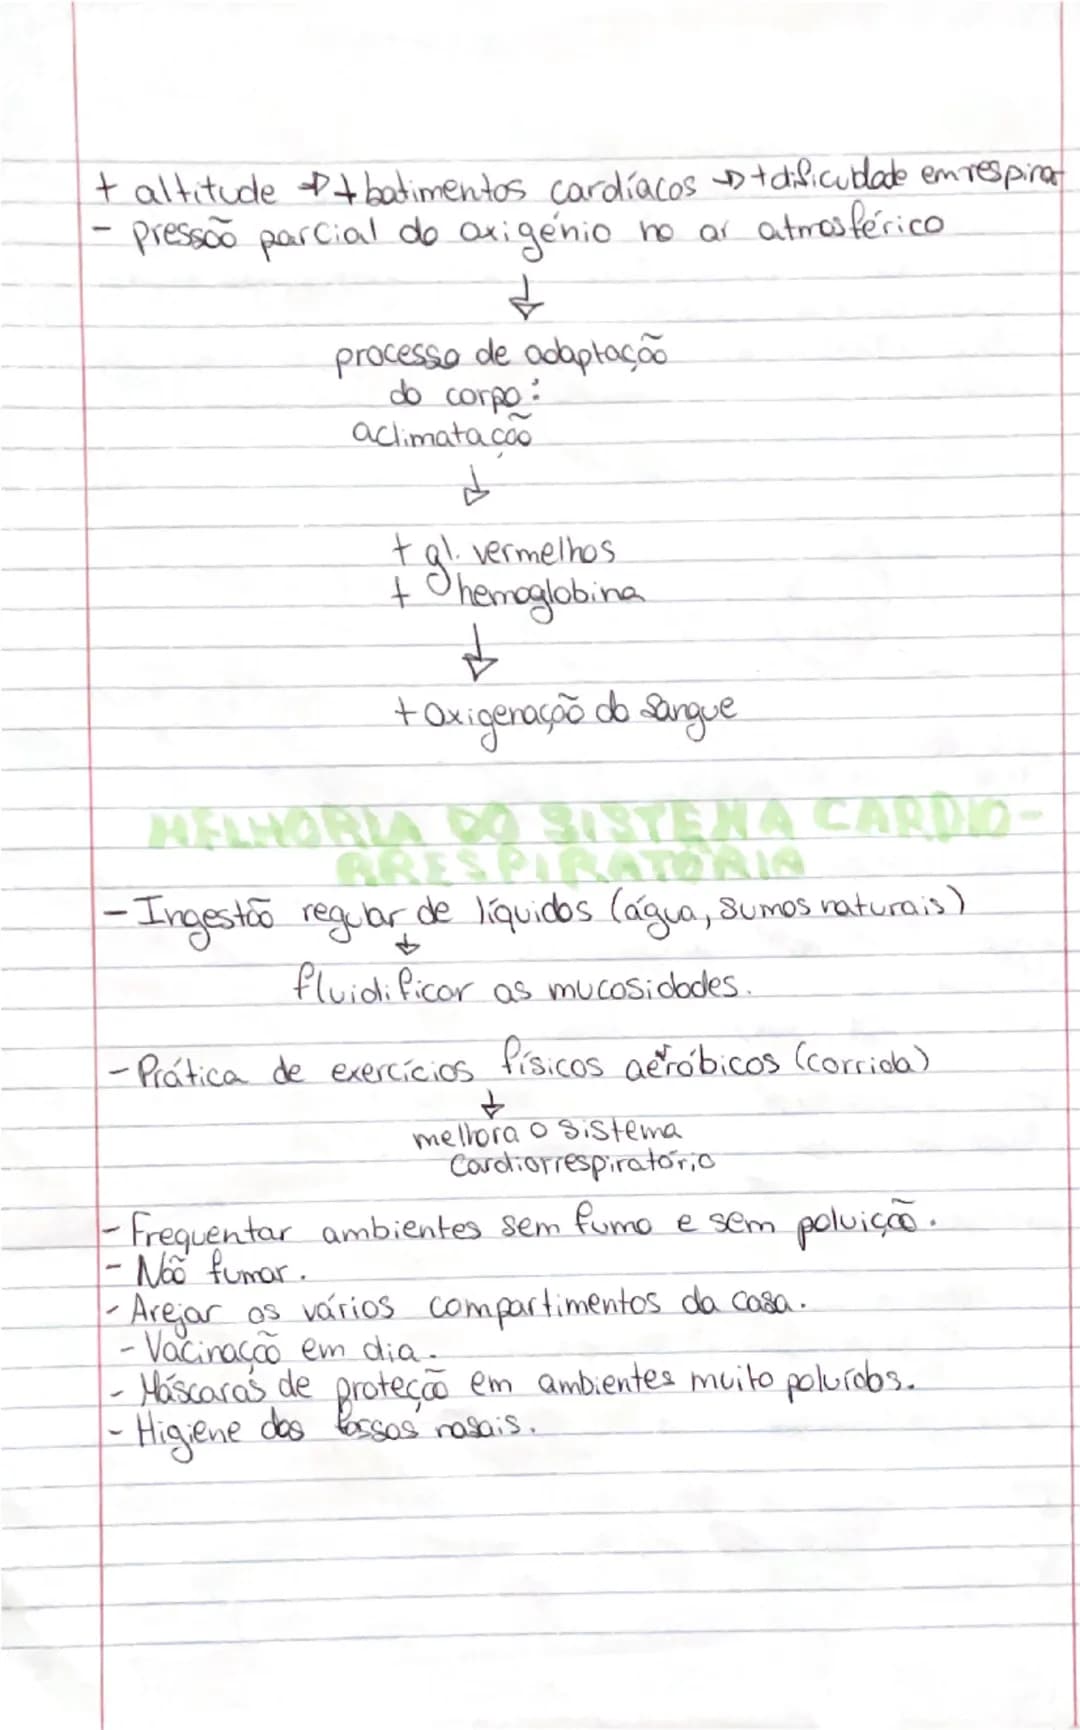 + altitude → + batimentos cardíacos → + dificuldade em respirar
- pressão parcial do oxigénio no ar atmosférico
↓
processo de adaptação
do corpo:
aclimatação
↓
+ gl. vermelhos
+ hemoglobina
↓
+ oxigenação do sangue
MELHORIA DO SISTEMA CARDIO-
RRESPIRATÓRIO
- Ingestão regular de líquidos (água, sumos naturais)
↓
fluidificar as mucosidades.
- Prática de exercícios físicos aeróbicos (corrida)
↓
melhora o sistema
Cardiorrespiratório
- Frequentar ambientes sem fumo e sem poluição.
- Não fumar.
- Arejar os vários compartimentos da casa.
- Vacinação em dia.
- Máscaras de proteção em ambientes muito poluídos.
- Higiene das fossas nasais.